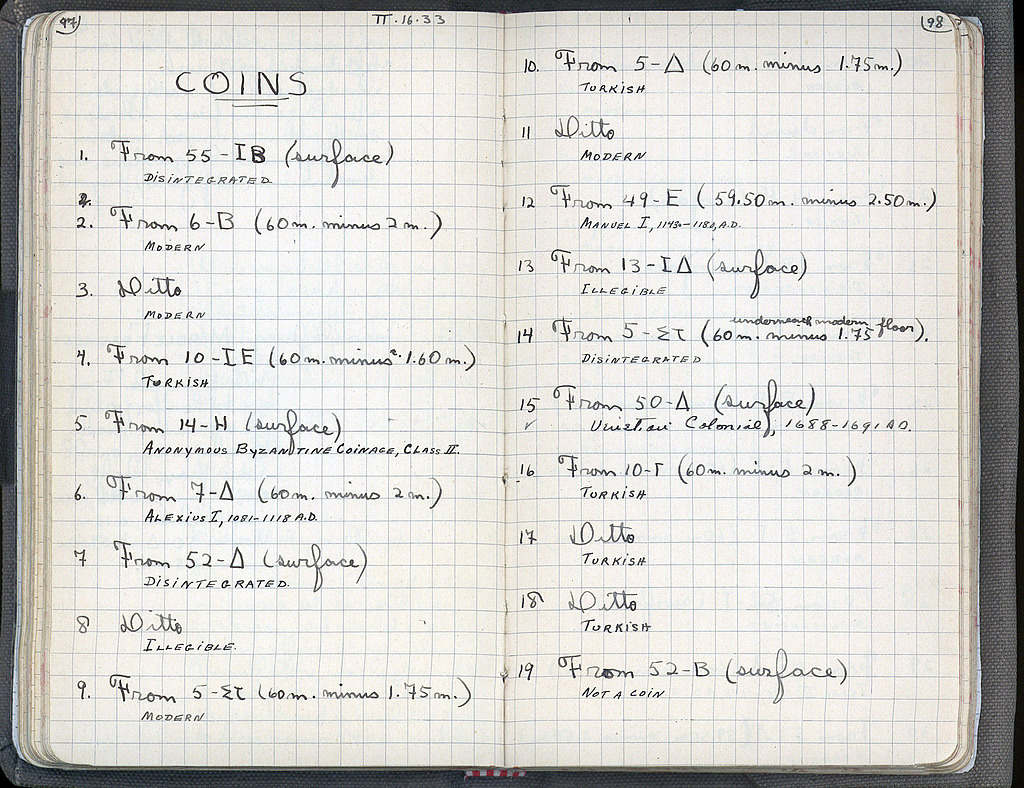 97
ΠΓ·16·33
COINS
1. From 55-IB (surface)
DISINTEGRATED
2. From 6-B (60m. minus 2m.)
MODERN
3. Ditto
MODERN
4. From 10-IE (60m. minus 1.60m.)
TURKISH
5 From 14-H (surface)
ANONYMOUS BYZANTINE COINAGE, CLASS II.
6. From 7-Δ (60m. minus 2m.)
ALEXIUS I, 1081-1118 A.D.
7 From 52-Δ (surface)
DISINTEGRATED.
8 Ditto
ILLEGIBLE.
9. From 5-Στ (60m. minus 1.75m.)
MODERN
98
10. From 5-Δ (60m. minus 1.75m.)
TURKISH
11 Ditto
MODERN
12 From 49-E (59.50m. minus 2.50m.)
MANUEL I, 1143-1180, A.D.
13 From 13-IΔ (surface)
ILLEGIBLE
underneath modern floor
14 From 5-Στ (60m. minus 1.75).
DISINTEGRATED
15 From 50-Δ (surface)
✓ Venetian Colonial, 1688-1691 A.D.
16 From 10-Γ (60m. minus 2m.)
TURKISH
17 Ditto
TURKISH
18 Ditto
TURKISH
19 From 52-B (surface)
NOT A COIN